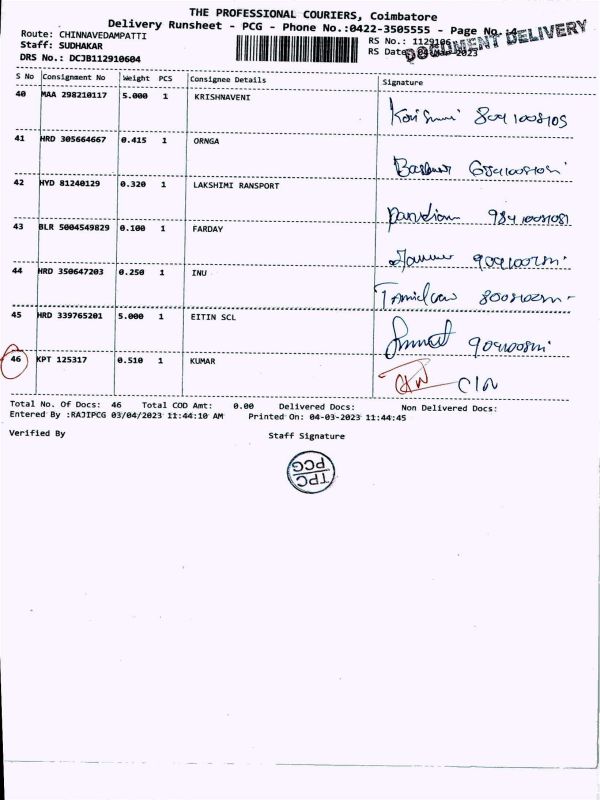 THE PROFESSIONAL COURIERS, Coimbatore
Delivery Runsheet - PCG - Phone No.:0422-3505555 - Page No.:4
Route: CHINNAVEDAMPATTI
Staff: SUDHAKAR
DRS No.: DCJB112910604
RS No.: 1129106
RS Date: 2023
DOCUMENT DELIVERY
S No Consignment No Weight PCS Consignee Details Signature
40 MAA 298210117 5.000 1 KRISHNAVENI
41 HRD 305664667 0.415 1 ORNGA
42 HYD 81240129 0.320 1 LAKSHIMI RANSPORT
43 BLR 5004549829 0.100 1 FARDAY
44 HRD 350647203 0.250 1 INU
45 HRD 339765201 5.000 1 EITIN SCL
46 KPT 125317 0.510 1 KUMAR
Total No. Of Docs: 46 Total COD Amt: 0.00 Delivered Docs: Non Delivered Docs:
Entered By :RAJIPCG 03/04/2023 11:44:10 AM Printed On: 04-03-2023 11:44:45
Verified By Staff Signature
TPC
PCG